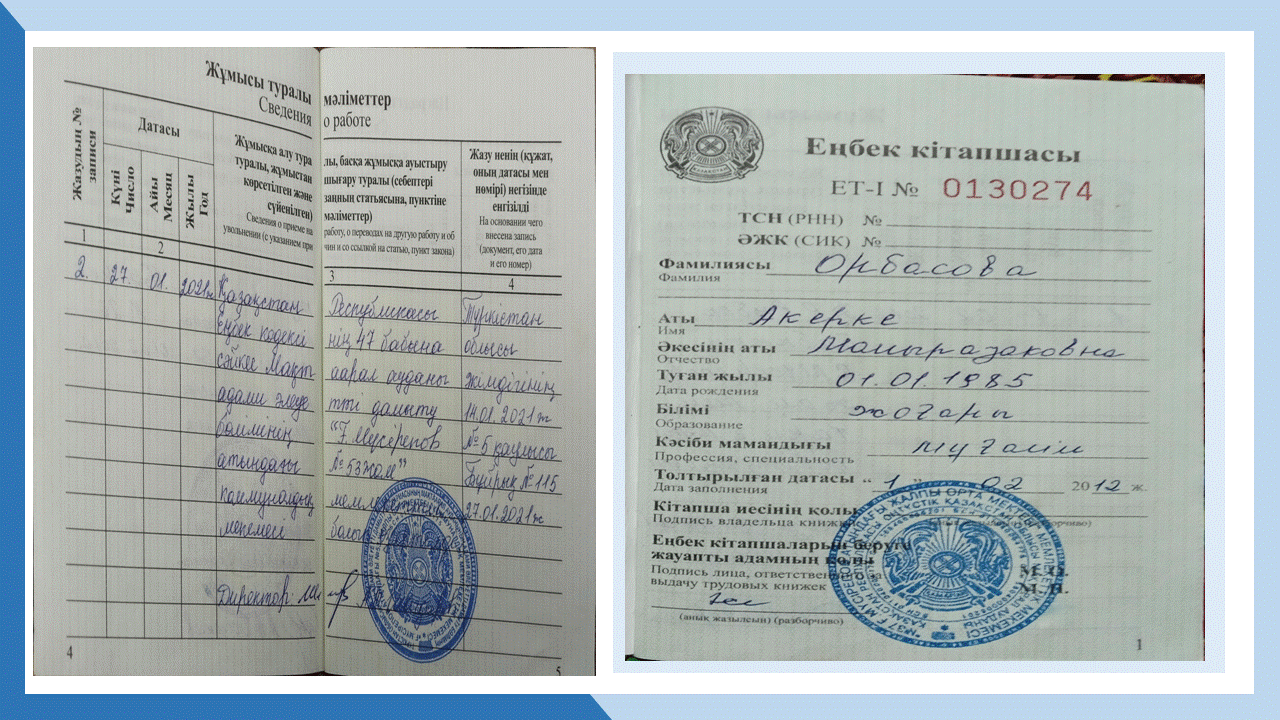 Жұмысы туралы мәліметтер
Сведения о работе
Жазудың №
записи
Датасы
Күні
Число
Айы
Месяц
Жылы
Год
Жұмысқа алу тура
туралы, жұмыстан
көрсетілген және
сүйенілген)
Сведения о приеме на
увольнении (с указанием при
лы, басқа жұмысқа ауыстыру
шығару туралы (себептері
заңның статьясына, пунктіне
мәліметтер)
работу, о переводах на другую работу и об
чин и со ссылкой на статью, пункт закона)
Жазу ненің (құжат,
оның датасы мен
нөмірі) негізінде
енгізілді
На основании чего
внесена запись
(документ, его дата
и его номер)
1 2 3 4
2. 27. 01. 2021ж Қазақстан Республикасы Түркістан
еңбек кодексі нің 47 бабына облысы
сәйкес Мақта арал ауданы әкімдігінің
адами әлеуе тті дамыту 14.01.2021ж
бөлімінің "Ғ.Мүсірепов №5 қаулысы
атындағы №53 жом" Бұйрық №115
коммуналдық мемлекеттік 27.01.2021ж
мекемесі болып
Директор
4
5
Еңбек кітапшасы
ET-I № 0130274
ТСН (РНН) №
ӘЖК (СИК) №
Фамилиясы Орбасова
Фамилия
Аты Акерке
Имя
Әкесінің аты
Отчество
Туған жылы 01.01.1985
Дата рождения
Білімі жоғары
Образование
Кәсіби мамандығы мұғалім
Профессия, специальность
Толтырылған датасы " 1 " 02 2012 ж.
Дата заполнения
Кітапша иесінің қолы
Подпись владельца книжки
Еңбек кітапшаларын беруге
жауапты адамның қолы
Подпись лица, ответственного за
выдачу трудовых книжек
М. О.
М. П.
(анық жазылсын) (разборчиво)
1